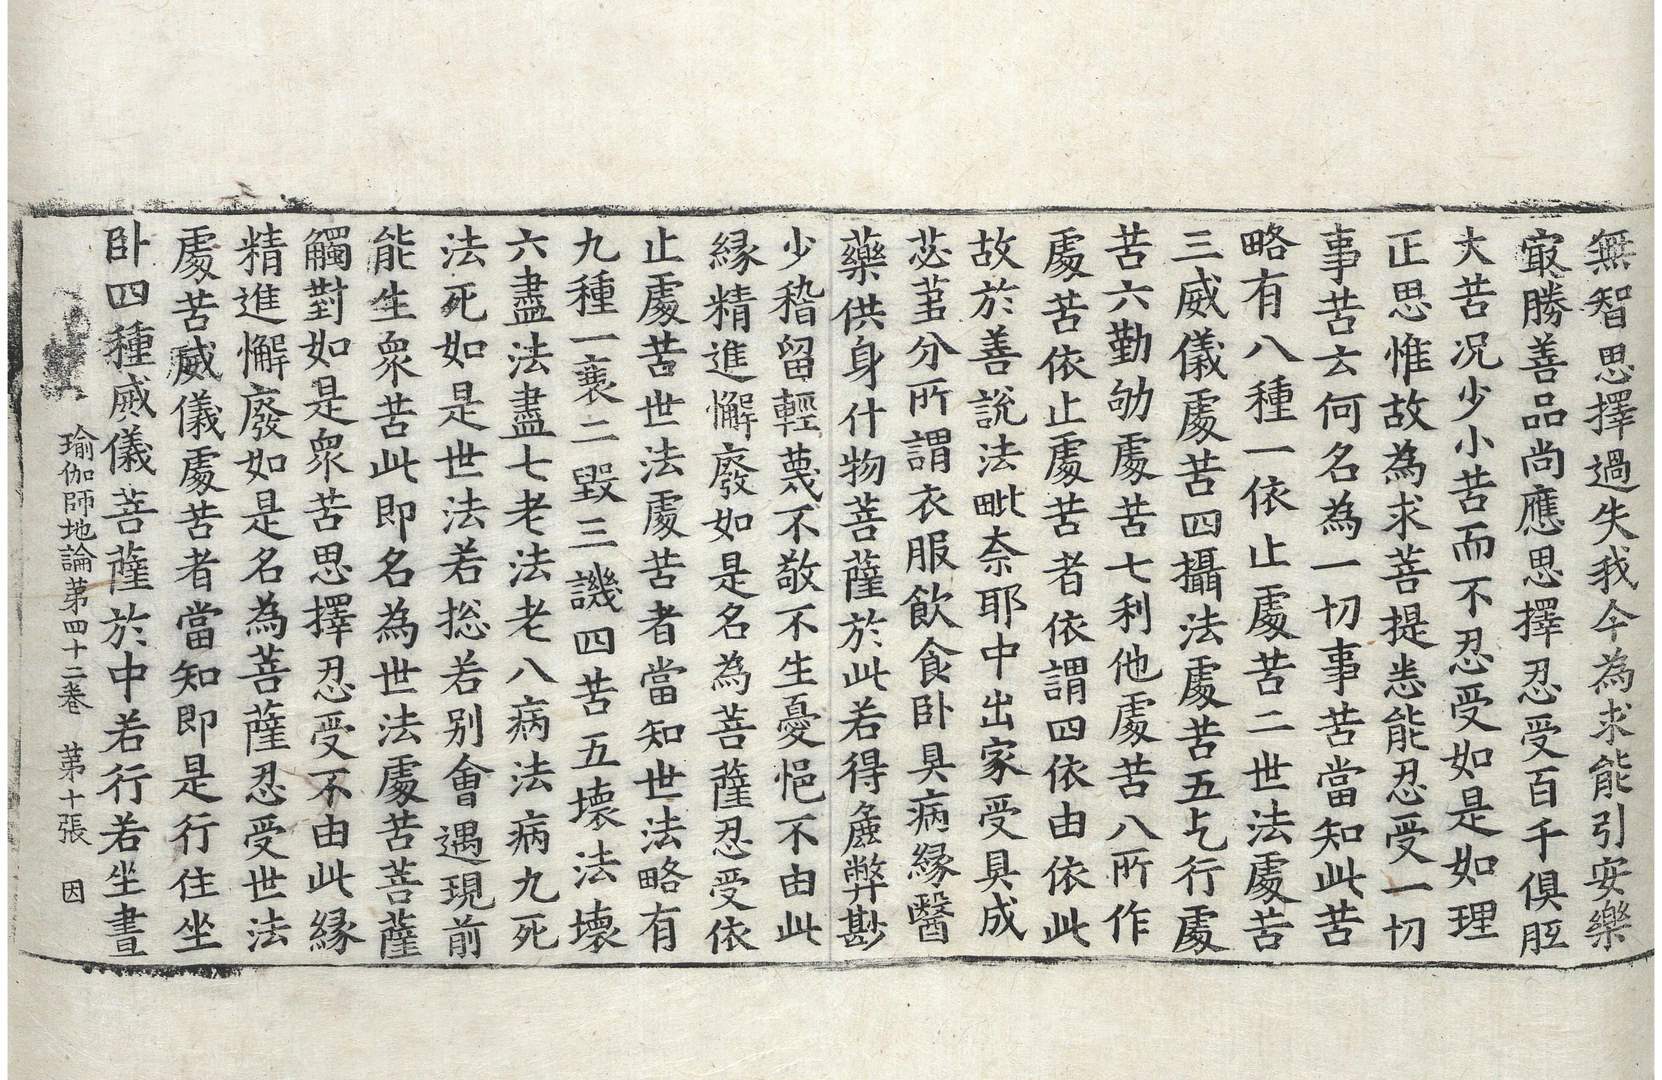 無智思擇過失我今為求能引安樂
㝡勝善品尚應思擇忍受百千俱胝
大苦况少小苦而不忍受如是如理
正思惟故為求菩提悉能忍受一切
事苦云何名為一切事苦當知此苦
略有八種一依止處苦二世法處苦
三威儀處苦四攝法處苦五乞行處
苦六勤劬處苦七利他處苦八所作
處苦依止處苦者依謂四依由依此
故於善說法毗奈耶中出家受具成
苾芻分所謂衣服飲食卧具病緣醫
藥供身什物菩薩於此若得麁弊尠
少稽留輕蔑不敬不生憂悒不由此
緣精進懈廢如是名為菩薩忍受依
止處苦世法處苦者當知世法略有
九種一衰二毀三譏四苦五壞法壞
六盡法盡七老法老八病法病九死
法死如是世法若捴若别會遇現前
能生衆苦此即名為世法處苦菩薩
觸對如是衆苦思擇忍受不由此緣
精進懈廢如是名為菩薩忍受世法
處苦威儀處苦者當知即是行住坐
卧四種威儀菩薩於中若行若坐晝
瑜伽師地論苐四十二卷　苐十張　因